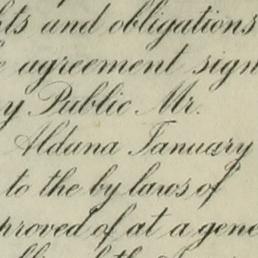 hts and obligations
agreement sign
y Public Mr.
Aldana January
to the by laws of
proved of at a gene